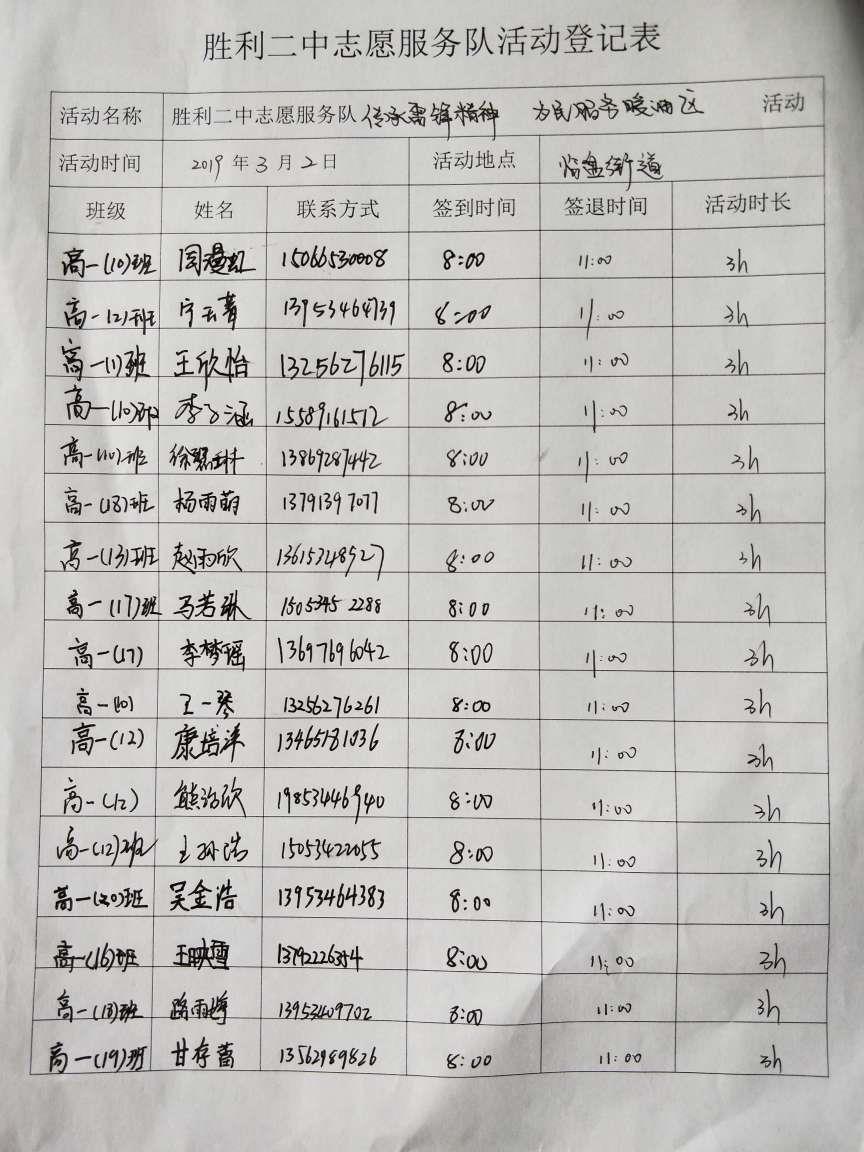 胜利二中志愿服务队活动登记表
活动名称 胜利二中志愿服务队传承雷锋精神 为民服务暖油区 活动
活动时间 2019年3月2日 活动地点 临盘街道
班级 姓名 联系方式 签到时间 签退时间 活动时长
高一(10)班 15066530008 8:00 11:00 3h
高一(2)班 13953464739 8:00 11:00 3h
高一(1)班 王欣怡 13256276115 8:00 11:00 3h
高一(10)班 李子涵 15589161512 8:00 11:00 3h
高一(10)班 徐慧琳 13869287442 8:00 11:00 3h
高一(18)班 杨雨萌 13791397077 8:00 11:00 3h
高一(13)班 赵雨欣 13615348527 8:00 11:00 3h
高一(17)班 马若琳 1505345 2288 8:00 11:00 3h
高一(17) 李梦瑶 13697696042 8:00 11:00 3h
高一(10) 王一琴 13256276261 8:00 11:00 3h
高一(12) 康培洋 13465181036 8:00 11:00 3h
高一(12) 熊治欣 19853446940 8:00 11:00 3h
高一(12)班 15053422055 8:00 11:00 3h
高一(20)班 吴金浩 13953464383 8:00 11:00 3h
高一(16)班 王映雪 13792226354 8:00 11:00 3h
高一(18)班 路雨婷 13953409702 8:00 11:00 3h
高一(19)班 甘存蕾 13562989826 8:00 11:00 3h